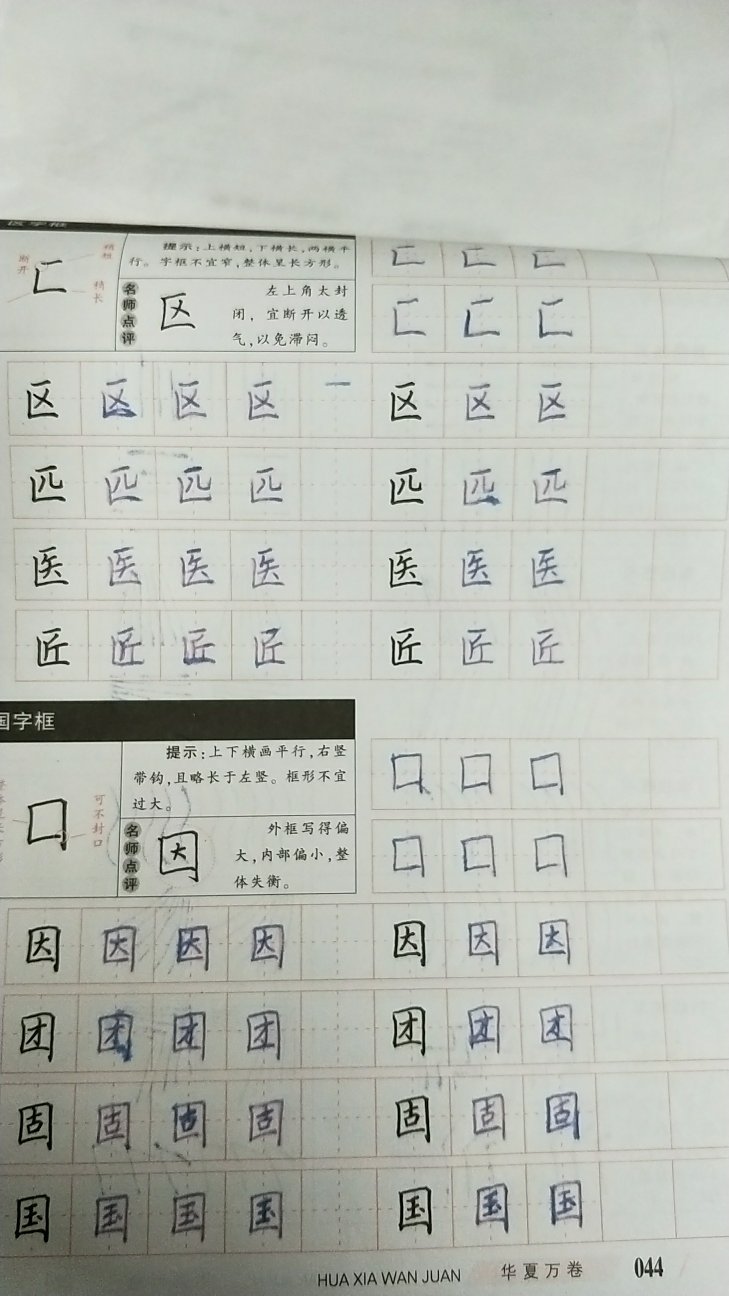 医字框
稍短
断开
稍长
匚
提示:上横短,下横长,两横平
行。字框不宜窄,整体呈长方形。
名师点评
区
左上角太封
闭,宜断开以透
气,以免滞闷。
匚 匚 匚
匚 匚 匚
区 区 区 区 一 区 区 区
匹 匹 匹 匹 匹 匹 匹
医 医 医 医 医 医 医
匠 匠 匠 匠 匠 匠 匠
国字框
口
可不封口
提示:上下横画平行,右竖
带钩,且略长于左竖。框形不宜
过大。
名师点评
因
外框写得偏
大,内部偏小,整
体失衡。
口 口 口
口 口 口
因 因 因 因 因 因 因
团 团 团 团 团 团 团
固 固 固 固 固 固 固
国 国 国 国 国 国 国
HUA XIA WAN JUAN 华夏万卷 044